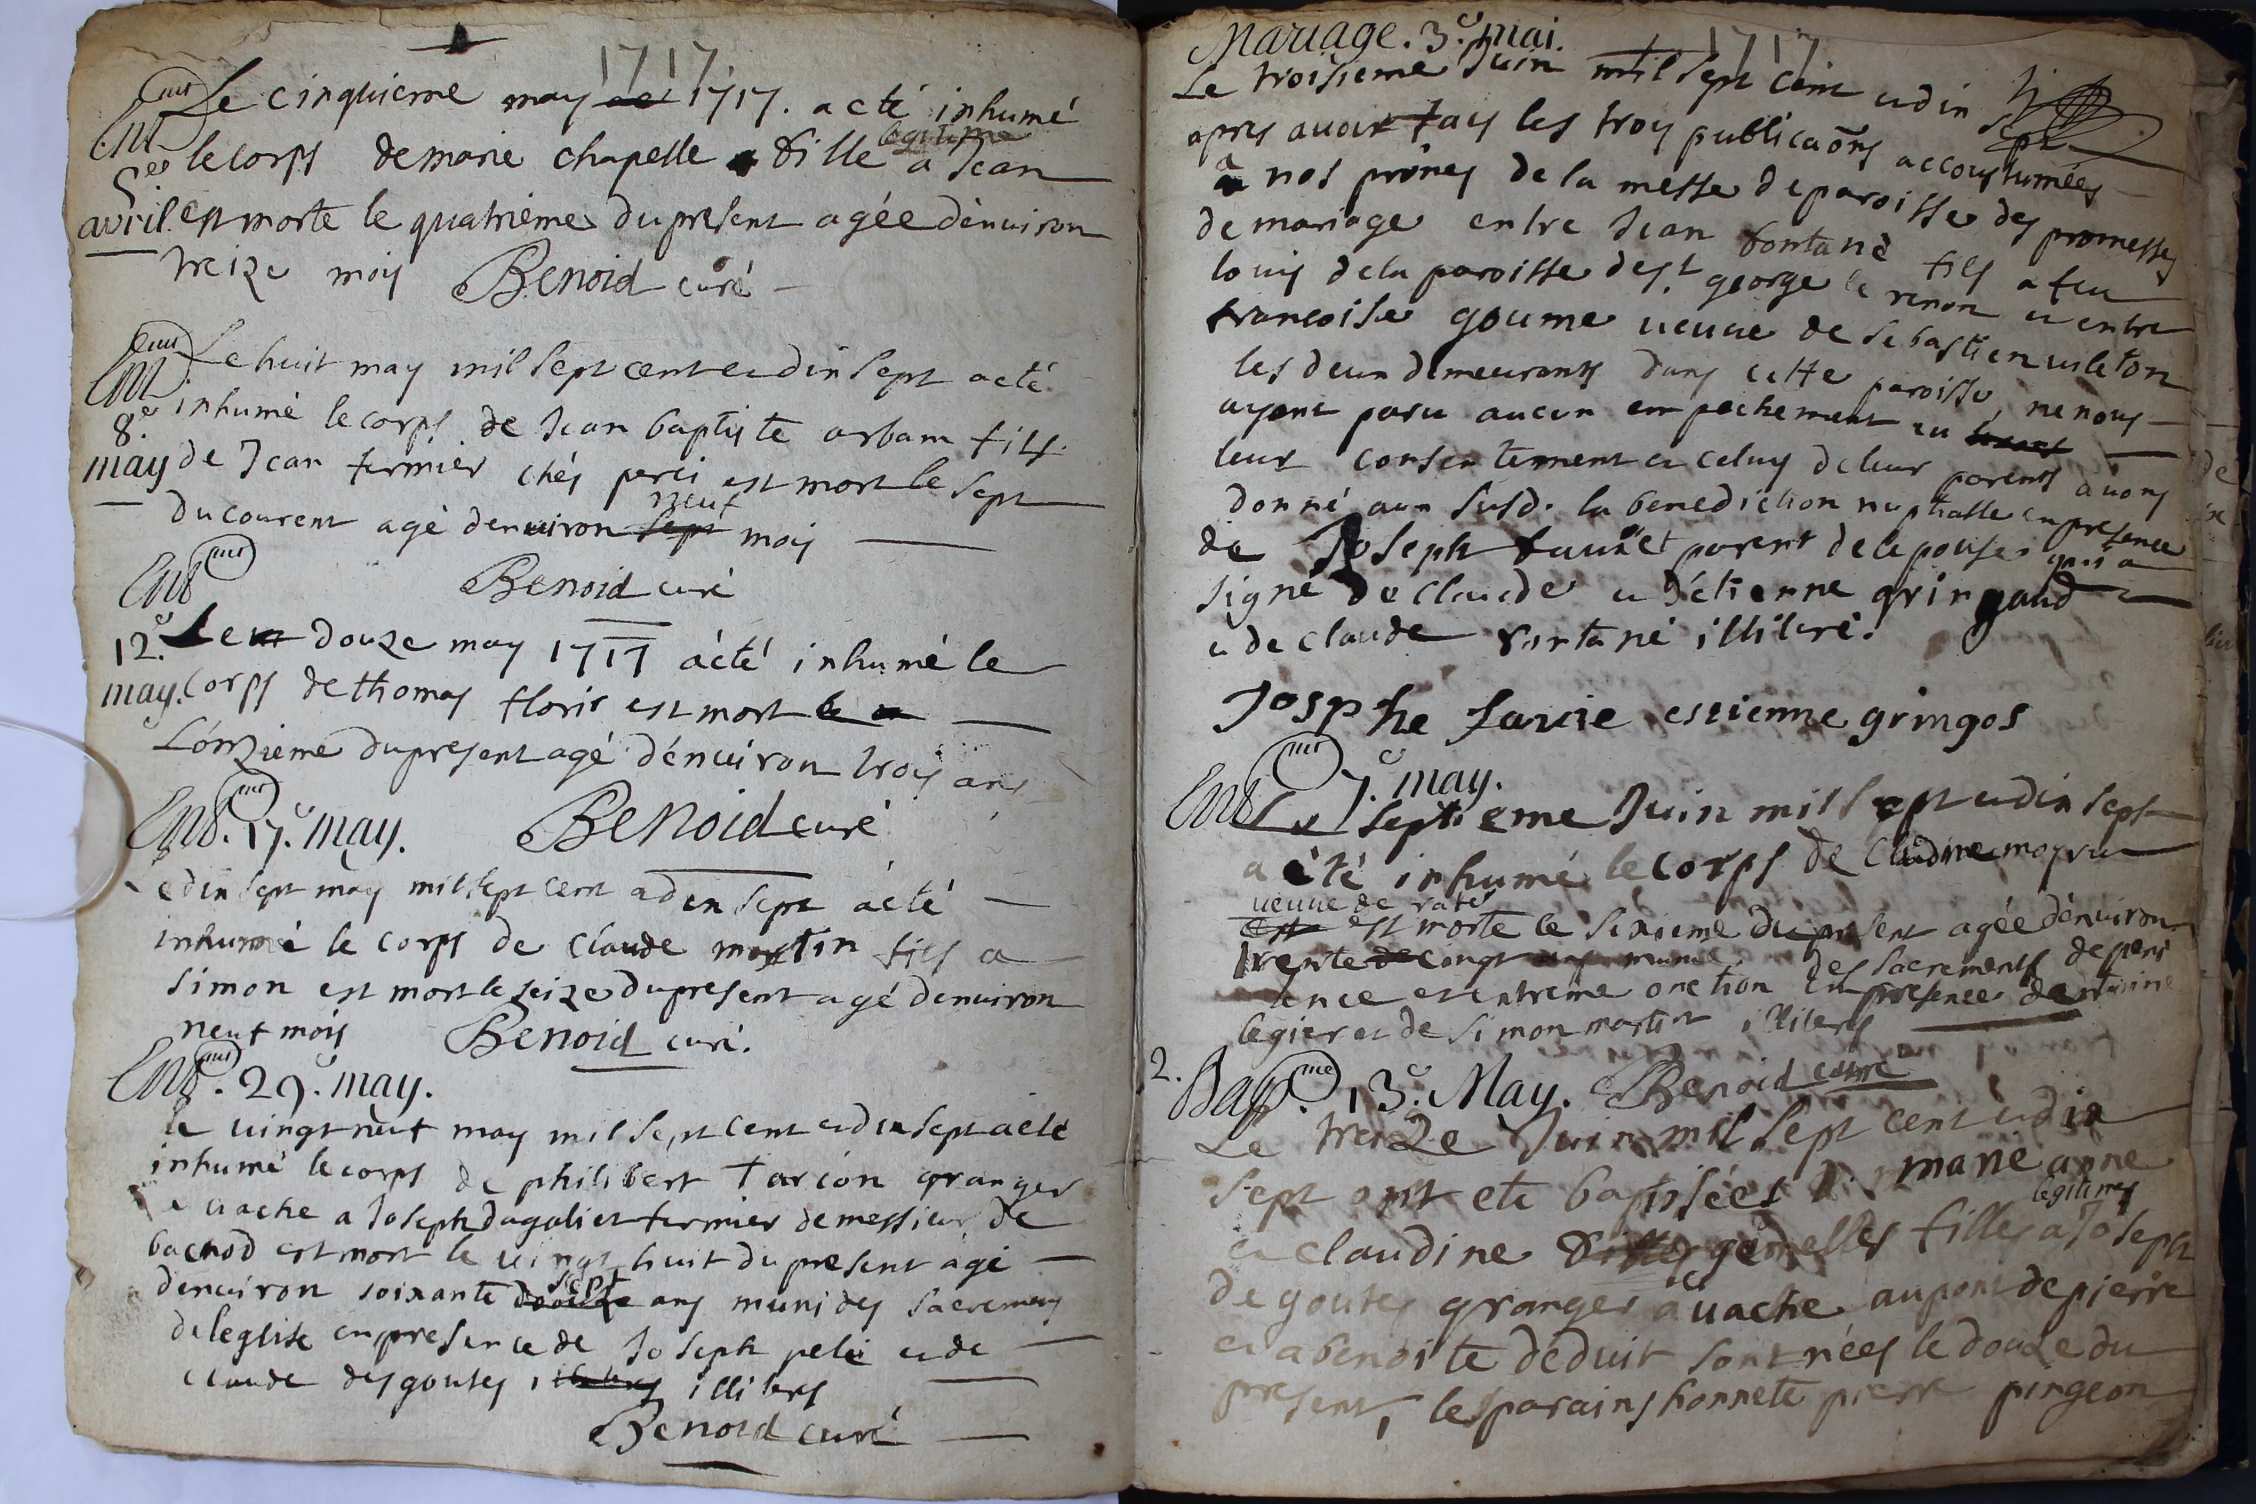 1717
Ent.mt Le cinquieme may 1717. a eté inhumé
5.e le corps de marie chapelle fille legitime a Jean
avril. est morte le quatrième du present agée dénuiron
treize mois Benoid curé
Ent.mt Le huit may mil sept cent et dix sept a eté
8.e inhumé le corps de Jean baptiste arbam fils
may de Jean fermier chés perci est mort le sept
du courent agé denuiron sept neuf mois
Ent.mt Benoid curé
12.e Le douze may 1717 a été inhumé le
may. corps de thomas floris est mort le
L'ônzieme du present agé dénuiron trois ans
Ent.mt 17.e may. Benoid curé
Le dix sept may mil sept cent et dix sept a été
inhumé le corps de claude martin fils a
Simon est mort le seize du present agé denuiron
neuf mois Benoid curé.
Ent.mt 29.e may.
le uingt neuf may mil sept cent et dix sept a eté
inhumé le corps de philibert farcon granger
a uache a Joseph dagallier fermier de messieur de
bachod est mort le uingt huit du present agé
denuiron soixante douze sept ans muni des sacremens
de leglise en presence de Joseph pelu et de
claude desgoutes illiters
Benoid curé
Mariage. 3.e mai. 1717
Le troisieme Juin mil sept cent et dix sept
apres auoir fais les trois publicaõns accoustumées
a nos prônes de la messe de paroisse des promesses
de mariage entre Jean fontané fils a feu
louis de la paroisse de s.t george le renon et entre
francoise goume ueuue de sebastien uileton
les deux demeurants dans cette paroisse, ne nous
ayent paru aucun empechement eu
leur consentement et celuy de leur parents auons
donné aux susd. la benediction nuptialle en presence
de Joseph fauret parent de lepouse qui a
signé de claude et d'étienne gringaud
et de claude fontané illiteré.
Josphe favie estienne gringos
Ent.mt 7.e may.
Le septieme Juin mil sept et dix sept
a été inhumé le corps de claudine moyru
ueuue de
est morte le sixieme du present agée dénuiron
trente cinq ans munie des sacrements de peni
tence et extreme onction en presence de
legier et de simon martin illiters
Benoid curé
2. Bap.me 13.e May.
Le treize Juin mil sept cent et dix
sept ont eté baptisées marie anne
et claudine gemelles filles legitimes a Joseph
de goutes granger a uache au pont de pierre
et a benoite deduit sont nées le douze du
present, les parains honnete pierre pingeon